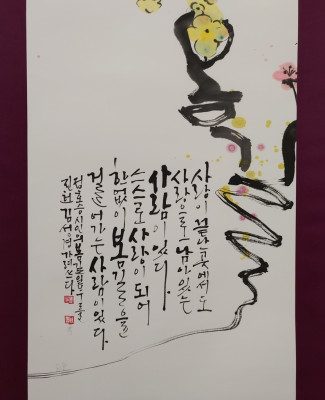 사랑이 끝난 곳에서도
사랑으로 남아있는
사람이 있다
스스로 사랑이 되어
한없이 봄길을
걸어가는 사람이 있다
정호승 시인의